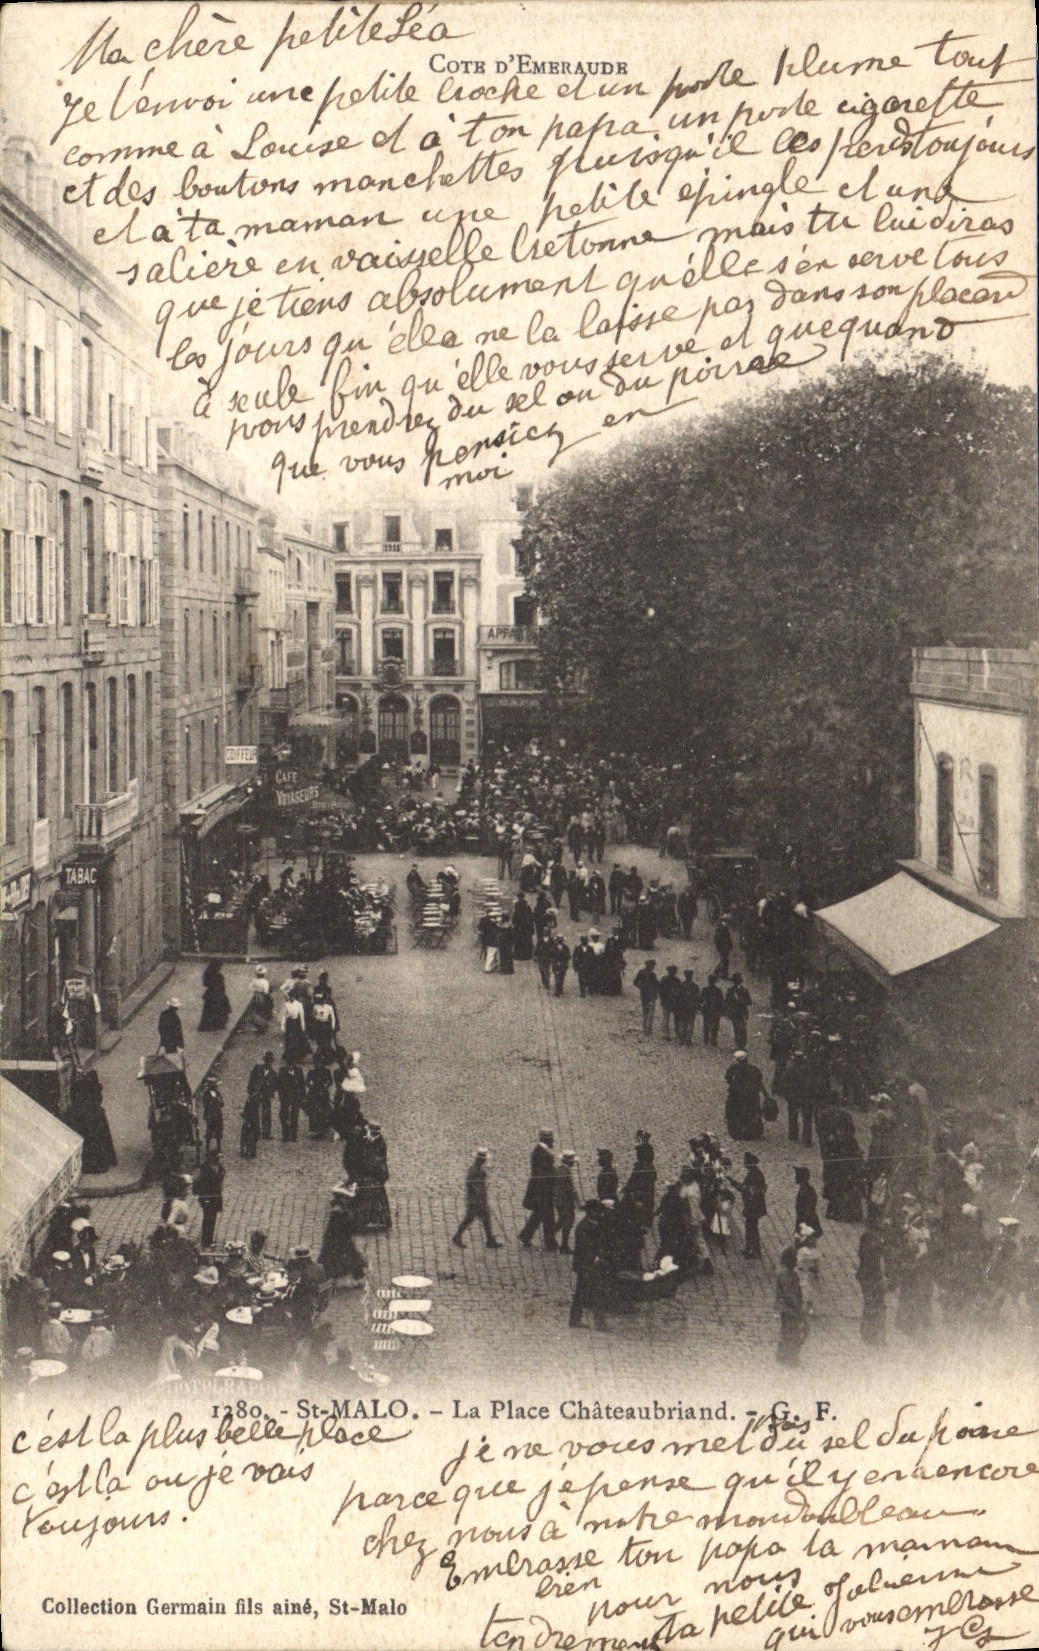 Ma chère petite Léa
COTE D'EMERAUDE
Je t'envoi une petite broche et un porte plume tout
comme à Louise et à ton papa un porte cigarette
et des boutons manchettes puisqu'il les perds toujours
et à ta maman une petite épingle et une
salière en vaisselle bretonne mais tu lui diras
que je tiens absolument qu'elle s'en serve tous
les jours qu'elle ne la laisse pas dans son placard
à seule fin qu'elle vous serve et que quand
vous prendrez du sel ou du poivre
que vous pensiez en
moi
APPA
COIFFEUR
CAFE
VOYAGEURS
TABAC
PHOTOGRAP
1280. - St-MALO. - La Place Châteaubriand. - G. F.
c'est la plus belle place
c'est là ou je vais
toujours.
je ne vous met pas du sel du poivre
parce que je pense qu'il y en a encore
chez nous à notre mondoubleau.
Embrasse ton papa ta maman
bien pour nous
tendrement ta petite Julienne
qui vous embrasse
Collection Germain fils ainé, St-Malo